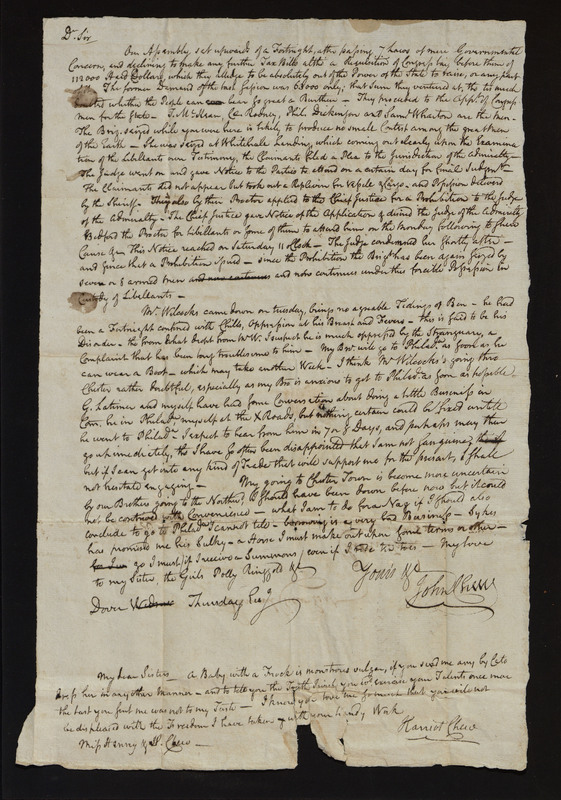 Dr. Sir
Our Assembly, sat upwards of a Fortnight, after passing 7 Laws of mere Governmental
Concern, and declining to make any further Tax Bills altho a Requisition of Congress lay before them of
112000 Hard Dollars, which they alledge to be absolutely out of the Power of the State to raise, or any part
The former Demand of the last Session was 68000 only; that Sum they ventured at, tho too much
whether the People can bear so great a Burthen — They proceeded to the Appt. of Congress
men for the State — T. McKean, Cs. Rodney, Phil. Dickinson and Saml. Wharton are the Men.
The Brig seized while you were here is likely to produce no small Contest among the great men
of the Earth — She was seized at Whitehall Landing which coming out clearly upon the Examina
tion of the Libellants own Testimony, the Claimants filed a Plea to the Jurisdiction of the Admiralty —
The Judge went on and gave Notice to the Parties to attend on a certain day for Final Judgmt.
The Claimants did not appear but took out a Replevin for Vessel & Cargo, and Possession delivered
by the Sheriff. They also by their Proctor applied to the Chief Justice for a Prohibition to the Judge
of the Admiralty — The Chief Justice gave Notice of the Application & desired the Judge of the Admiralty
& Bedford the Proctor for Libellants or some of them to attend him on the Monday following to shew
Cause &ca This Notice reached on Saturday 11 oClock — The Judge condemned her shortly after —
and since that a Prohibition issued — since the Prohibition the Brig has been again seized by
seven or 8 armed men and now continues under this forcible Possession in
Custody of Libellants —
Mr. Wilcocks came down on tuesday, brings no agreable Tidings of Ben — he had
been a Fortnight confined with Chills, Oppression at his Breast and Fevers — this is said to be his
Disorder — tho from what dropt from Mr. W. I suspect he is much oppressed by the Strangury, a
Complaint that has been long troublesome to him — My Bror. will go to Philada. as soon as he
can wear a Boot — which may take another Week — I think Mr Wilcocks's going thro
Chester rather doubtful, especially as my Bro is anxious to get to Philada. as soon as possible
G. Latimer and myself have had some Conversation about doing a little Business in
Com: he in Philada. myself at the X Roads, but nothing certain could be fixed untill
he went to Philada. I expect to hear from him in 7 or 8 Days, and perhaps may then
go up immediately, tho I have so often been disappointed that I am not sanguine,
but if I can get into any kind of Trade that will support me for the present, I shall
not hesitate engaging — My going to Chester Town is become more uncertain
by our Brothers going to the Northwd. I should have been down before now but it could
not be contrived with Convenience — what I am to do for a Nag if I should also
conclude to go to Philada. I cannot tell — borrowing is a very bad Business — Sykes
has promised me his Sulky — a Horse I must make out upon some terms or other —
go I must if I receive a Summons, even if I ride Ten Toes — My love
to my Sister, the Girls Polly Ringgold &c
Yours &c
John Chew
Dover Thursday Eveg.
My dear Sisters — A Baby with a Frock is monstrous vulgar, if you send me any by Cato
dress her in any other Manner — and to tell you the Truth, I wish you wd. exercise your Talents once more
the last you sent me was not to my Taste — I know you love me so much that you will not
be displeased with the Freedom I have taken with your handy Work
Harriot Chew
Miss Henny & M. Chew —